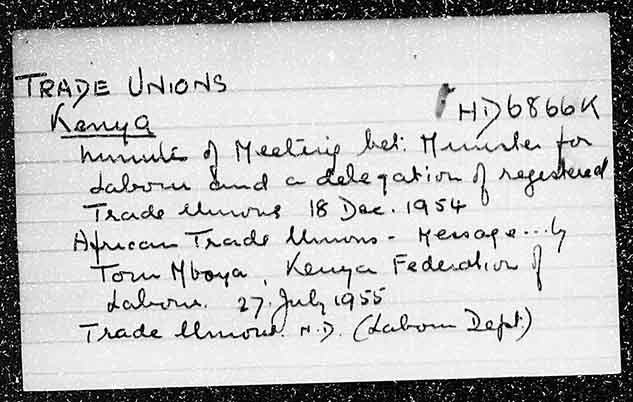 TRADE UNIONS
HD6866K
Kenya
Minute of Meeting bet: Minister for
Labour and a delegation of registered
Trade Unions 18 Dec. 1954
African Trade Unions - Message... by
Tom Mboya, Kenya Federation of
Labour. 27. July 1955
Trade Unions. N.D. (Labour Dept)